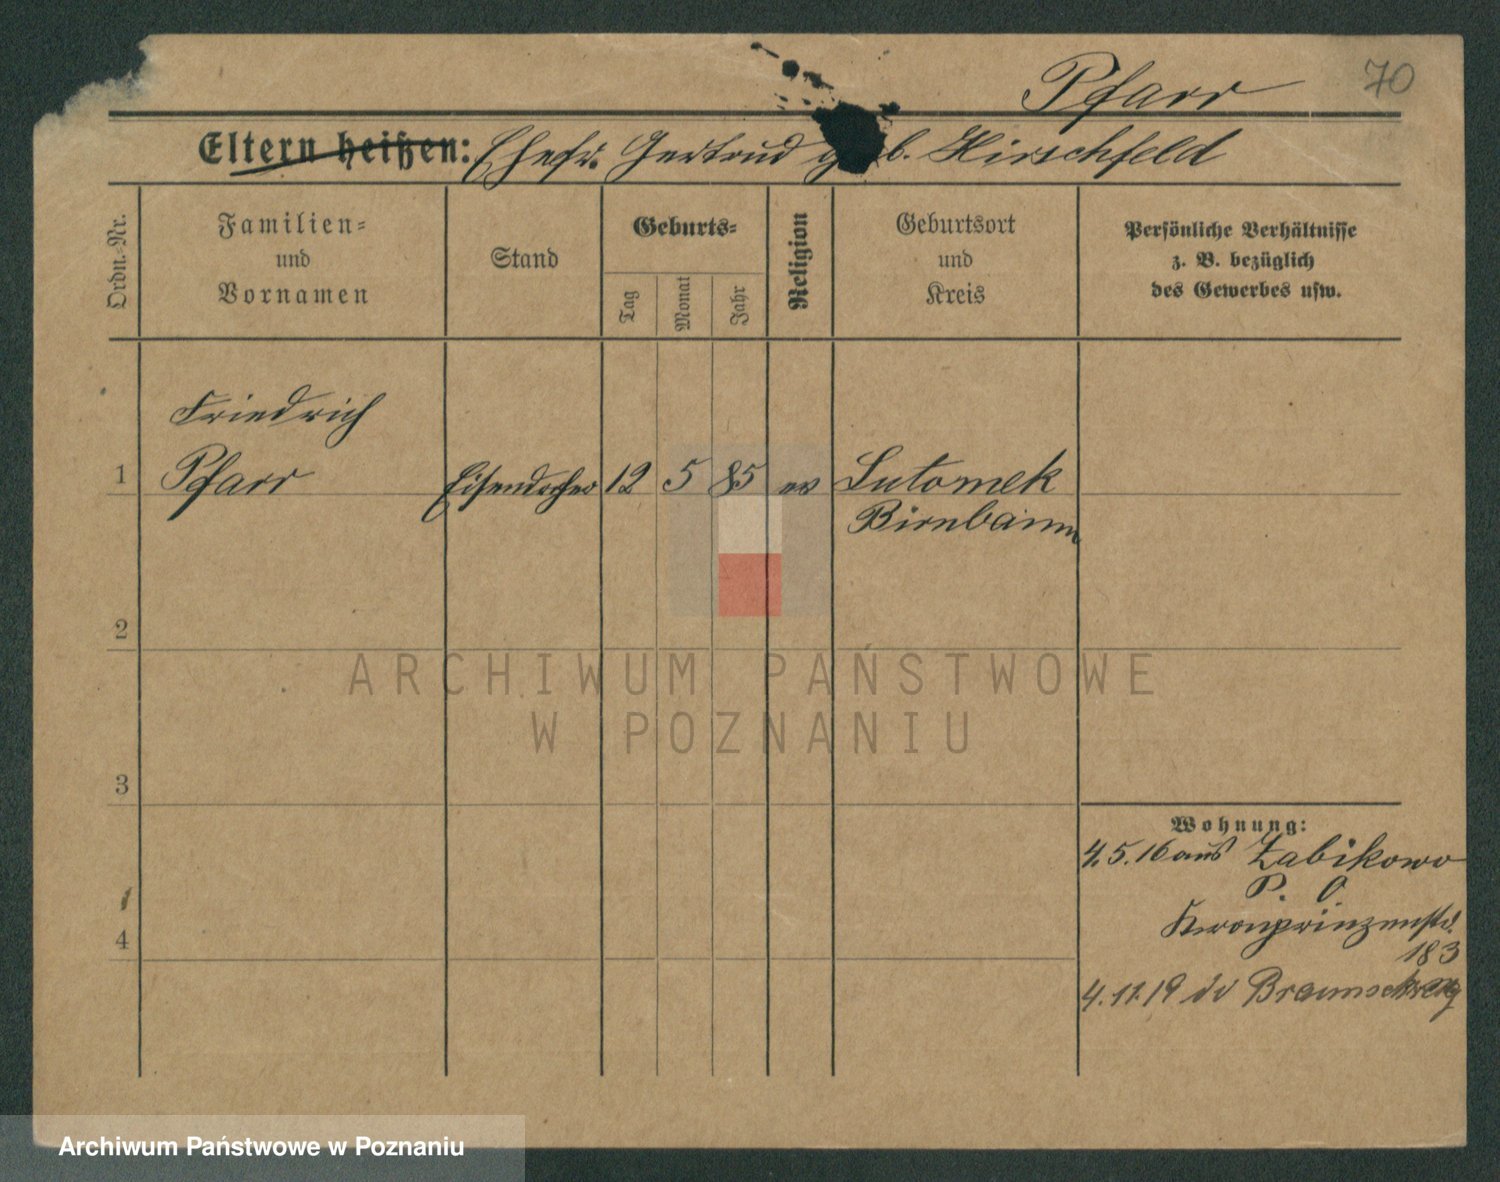 Pfarr 70
Eltern heißen: Ehefr. Gertrud geb. Hirschfeld
Ordn.-Nr.
Familien-
und
Vornamen
Stand
Geburts-
Tag
Monat
Jahr
Religion
Geburtsort
und
Kreis
Persönliche Verhältnisse
z. B. bezüglich
des Gewerbes usw.
Friedrich
1 Pfarr Eisendreher 12 5 85 ev Lutomek
Birnbaum
2
ARCHIWUM PAŃSTWOWE
W POZNANIU
3
Wohnung:
4.5.16 aus Zabikowo
P. O.
Kronprinzenstr.
183
4
4.11.19 Braunschweig
Archiwum Państwowe w Poznaniu